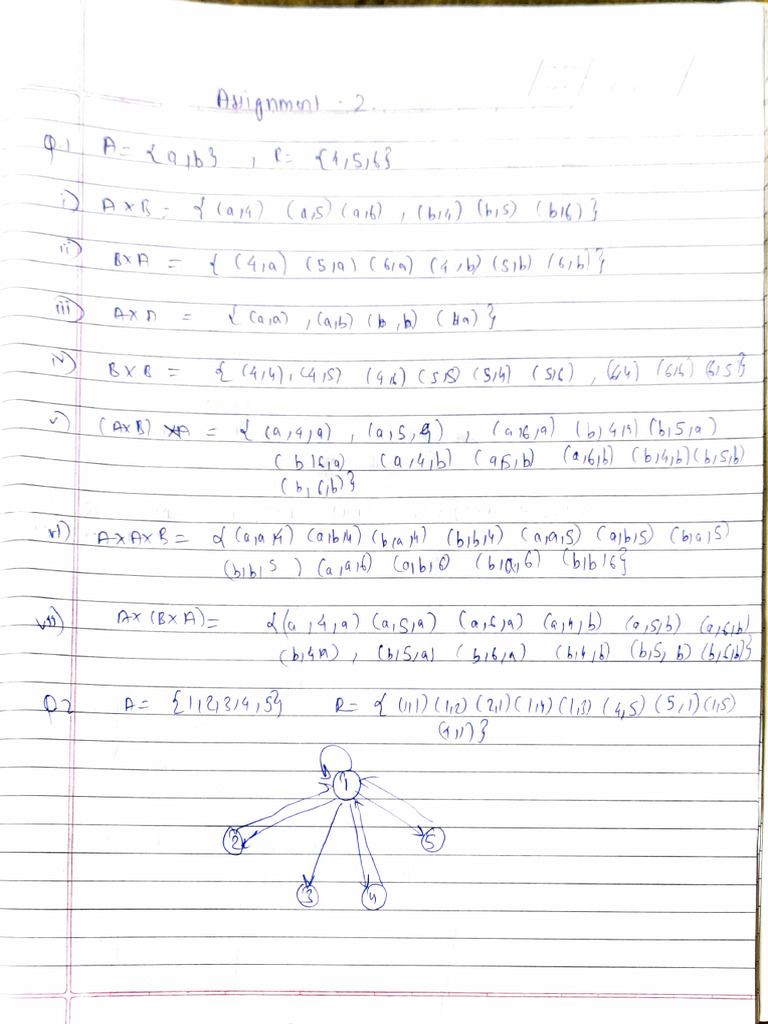 Assignment - 2.
Q.1 A = {a,b} , B = {4,5,6}
i) A×B = { (a,4) (a,5) (a,6) , (b,4) (b,5) (b,6) }
ii) B×A = { (4,a) (5,a) (6,a) (4,b) (5,b) (6,b) }
iii) A×A = { (a,a) , (a,b) (b,b) (b,a) }
iv) B×B = { (4,4), (4,5) (4,6) (5,5) (5,4) (5,6) , (6,4) (6,6) (6,5) }
v) (A×B) ×A = { (a,4,a) , (a,5,a) , (a,6,a) (b,4,a) (b,5,a)
(b,6,a) (a,4,b) (a,5,b) (a,6,b) (b,4,b) (b,5,b)
(b,6,b) }
vi) A×A×B = { (a,a,4) (a,b,4) (b,a,4) (b,b,4) (a,a,5) (a,b,5) (b,a,5)
(b,b,5) (a,a,6) (a,b,6) (b,a,6) (b,b,6) }
vii) A×(B×A) = { (a,4,a) (a,5,a) (a,6,a) (a,4,b) (a,5,b) (a,6,b)
(b,4,a) , (b,5,a) (b,6,a) (b,4,b) (b,5,b) (b,6,b) }
Q.2 A = {1,2,3,4,5} R = { (1,1) (1,2) (2,1) (1,4) (1,3) (4,5) (5,1) (1,5)
1
2
5
3
4